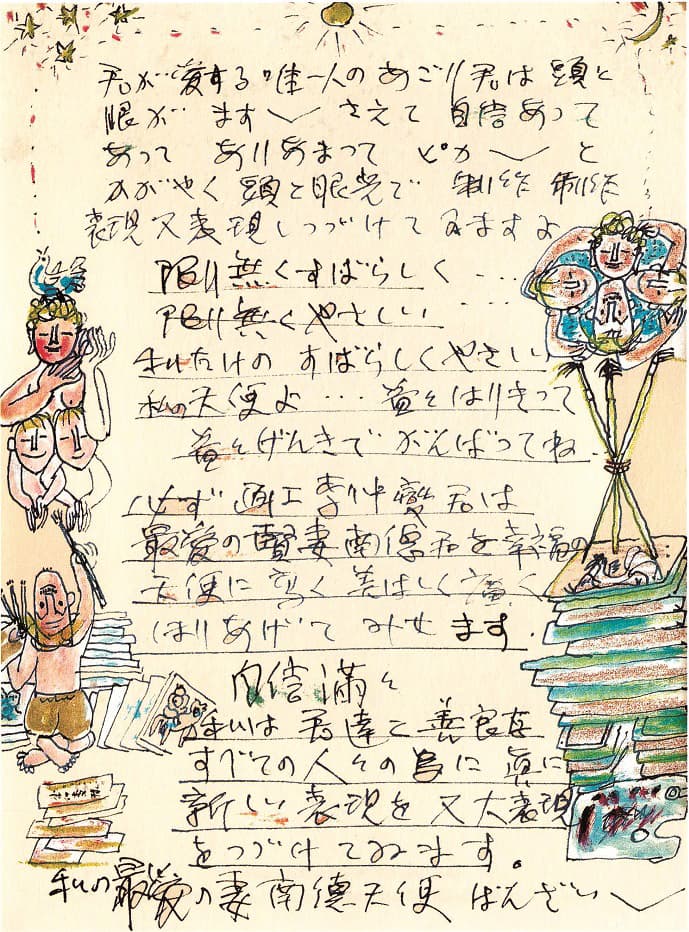 君が愛する唯一人のあごり君は頭と
眼が ます〱 さえて 自信あって
あって ありあまって ピカ〱 と
かがやく 頭と眼光で 制作 制作
表現又表現しつづけてゐますよ
限り無くすばらしく ‥‥
限り無くやさしい ‥‥
私だけの すばらしくやさしい
私の天使よ … 益々はりきって
益々げんきで がんばってね.
必ず 画工李仲燮君は
最愛の賢妻南德君を幸福の
天使に高く美はしく廣く
ほりあげて みせます.
自信満々
私は 君達と善良な
すべての人々の為に 真に
新しい表現を又大表現
をつづけてゐます。
私の最愛の妻南德天使 ばんざい〱